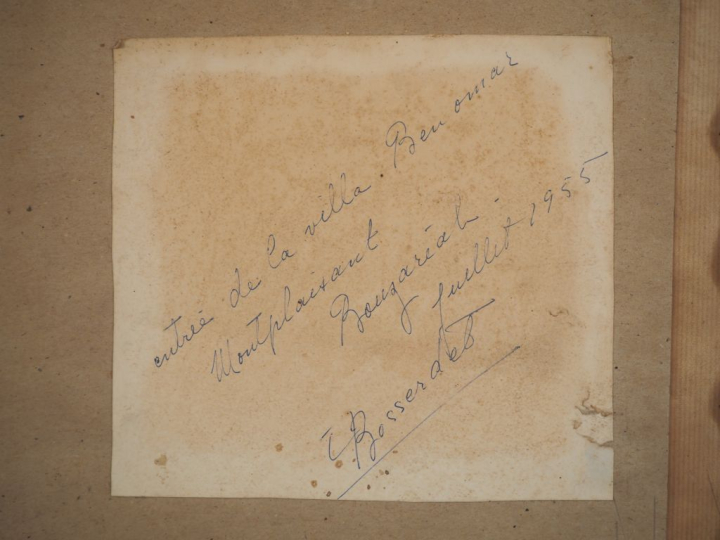 entrée de la villa Ben omar
Montplaisant
Bouzaréah.
Juillet 1955
Bosserdet